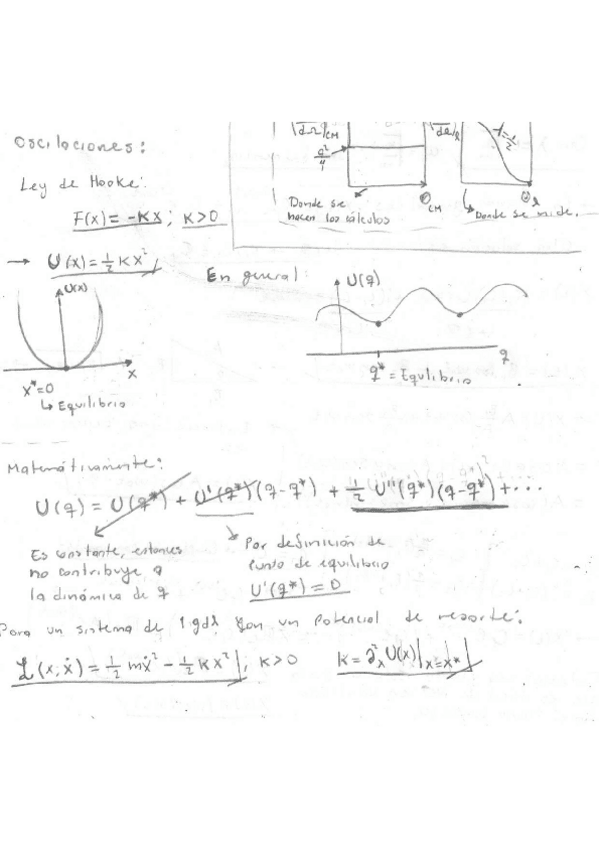 dσ/dΩ|CM
dσ/dΩ|l
a²/4
γ=1/2
Θ CM
Θ l
Donde se
hacen los cálculos
Donde se mide.
Oscilaciones:
Ley de Hooke:
F(x) = -kx ; k>0
→ U(x) = ½ k x²
U(x)
x
x*=0
↳ Equilibrio
En general:
U(q)
q
q* = Equilibrio
Matemáticamente:
U(q) = U(q*) + U'(q*)(q-q*) + ½ U''(q*)(q-q*) + ...
Es constante, entonces
no contribuye a
la dinámica de q
Por definición de
punto de equilibrio
U'(q*) = 0
Para un sistema de 1 gdl con un potencial de resorte:
ℒ(x, ẋ) = ½ mẋ² - ½ kx² ; k>0 k = ∂²ₓ U(x)|x=x*